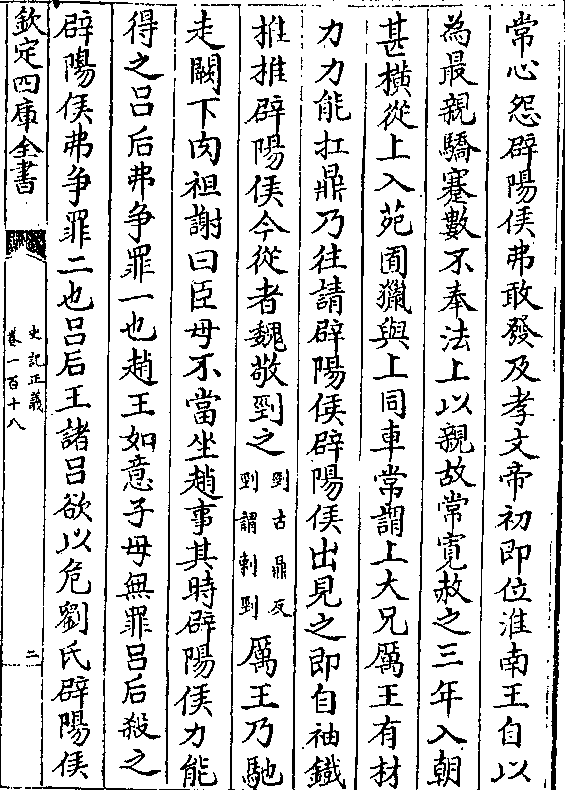 常心怨辟陽侯弗敢發及孝文帝初即位淮南王自以
為最親驕蹇數不奉法上以親故常寛赦之三年入朝
甚橫從上入苑囿獵與上同車常謂上大兄厲王有材
力力能扛鼎乃往請辟陽侯辟陽侯出見之即自袖鐵
推推辟陽侯今從者魏敬剄之
剄古鼎反
剄謂刺剄
厲王乃馳
走闕下肉袒謝曰臣母不當坐趙事其時辟陽侯力能
得之吕后弗争罪一也趙王如意子母無罪吕后殺之
辟陽侯弗争罪二也吕后王諸吕欲以危劉氏辟陽侯
欽定四庫全書
史記正義
卷一百十八
二